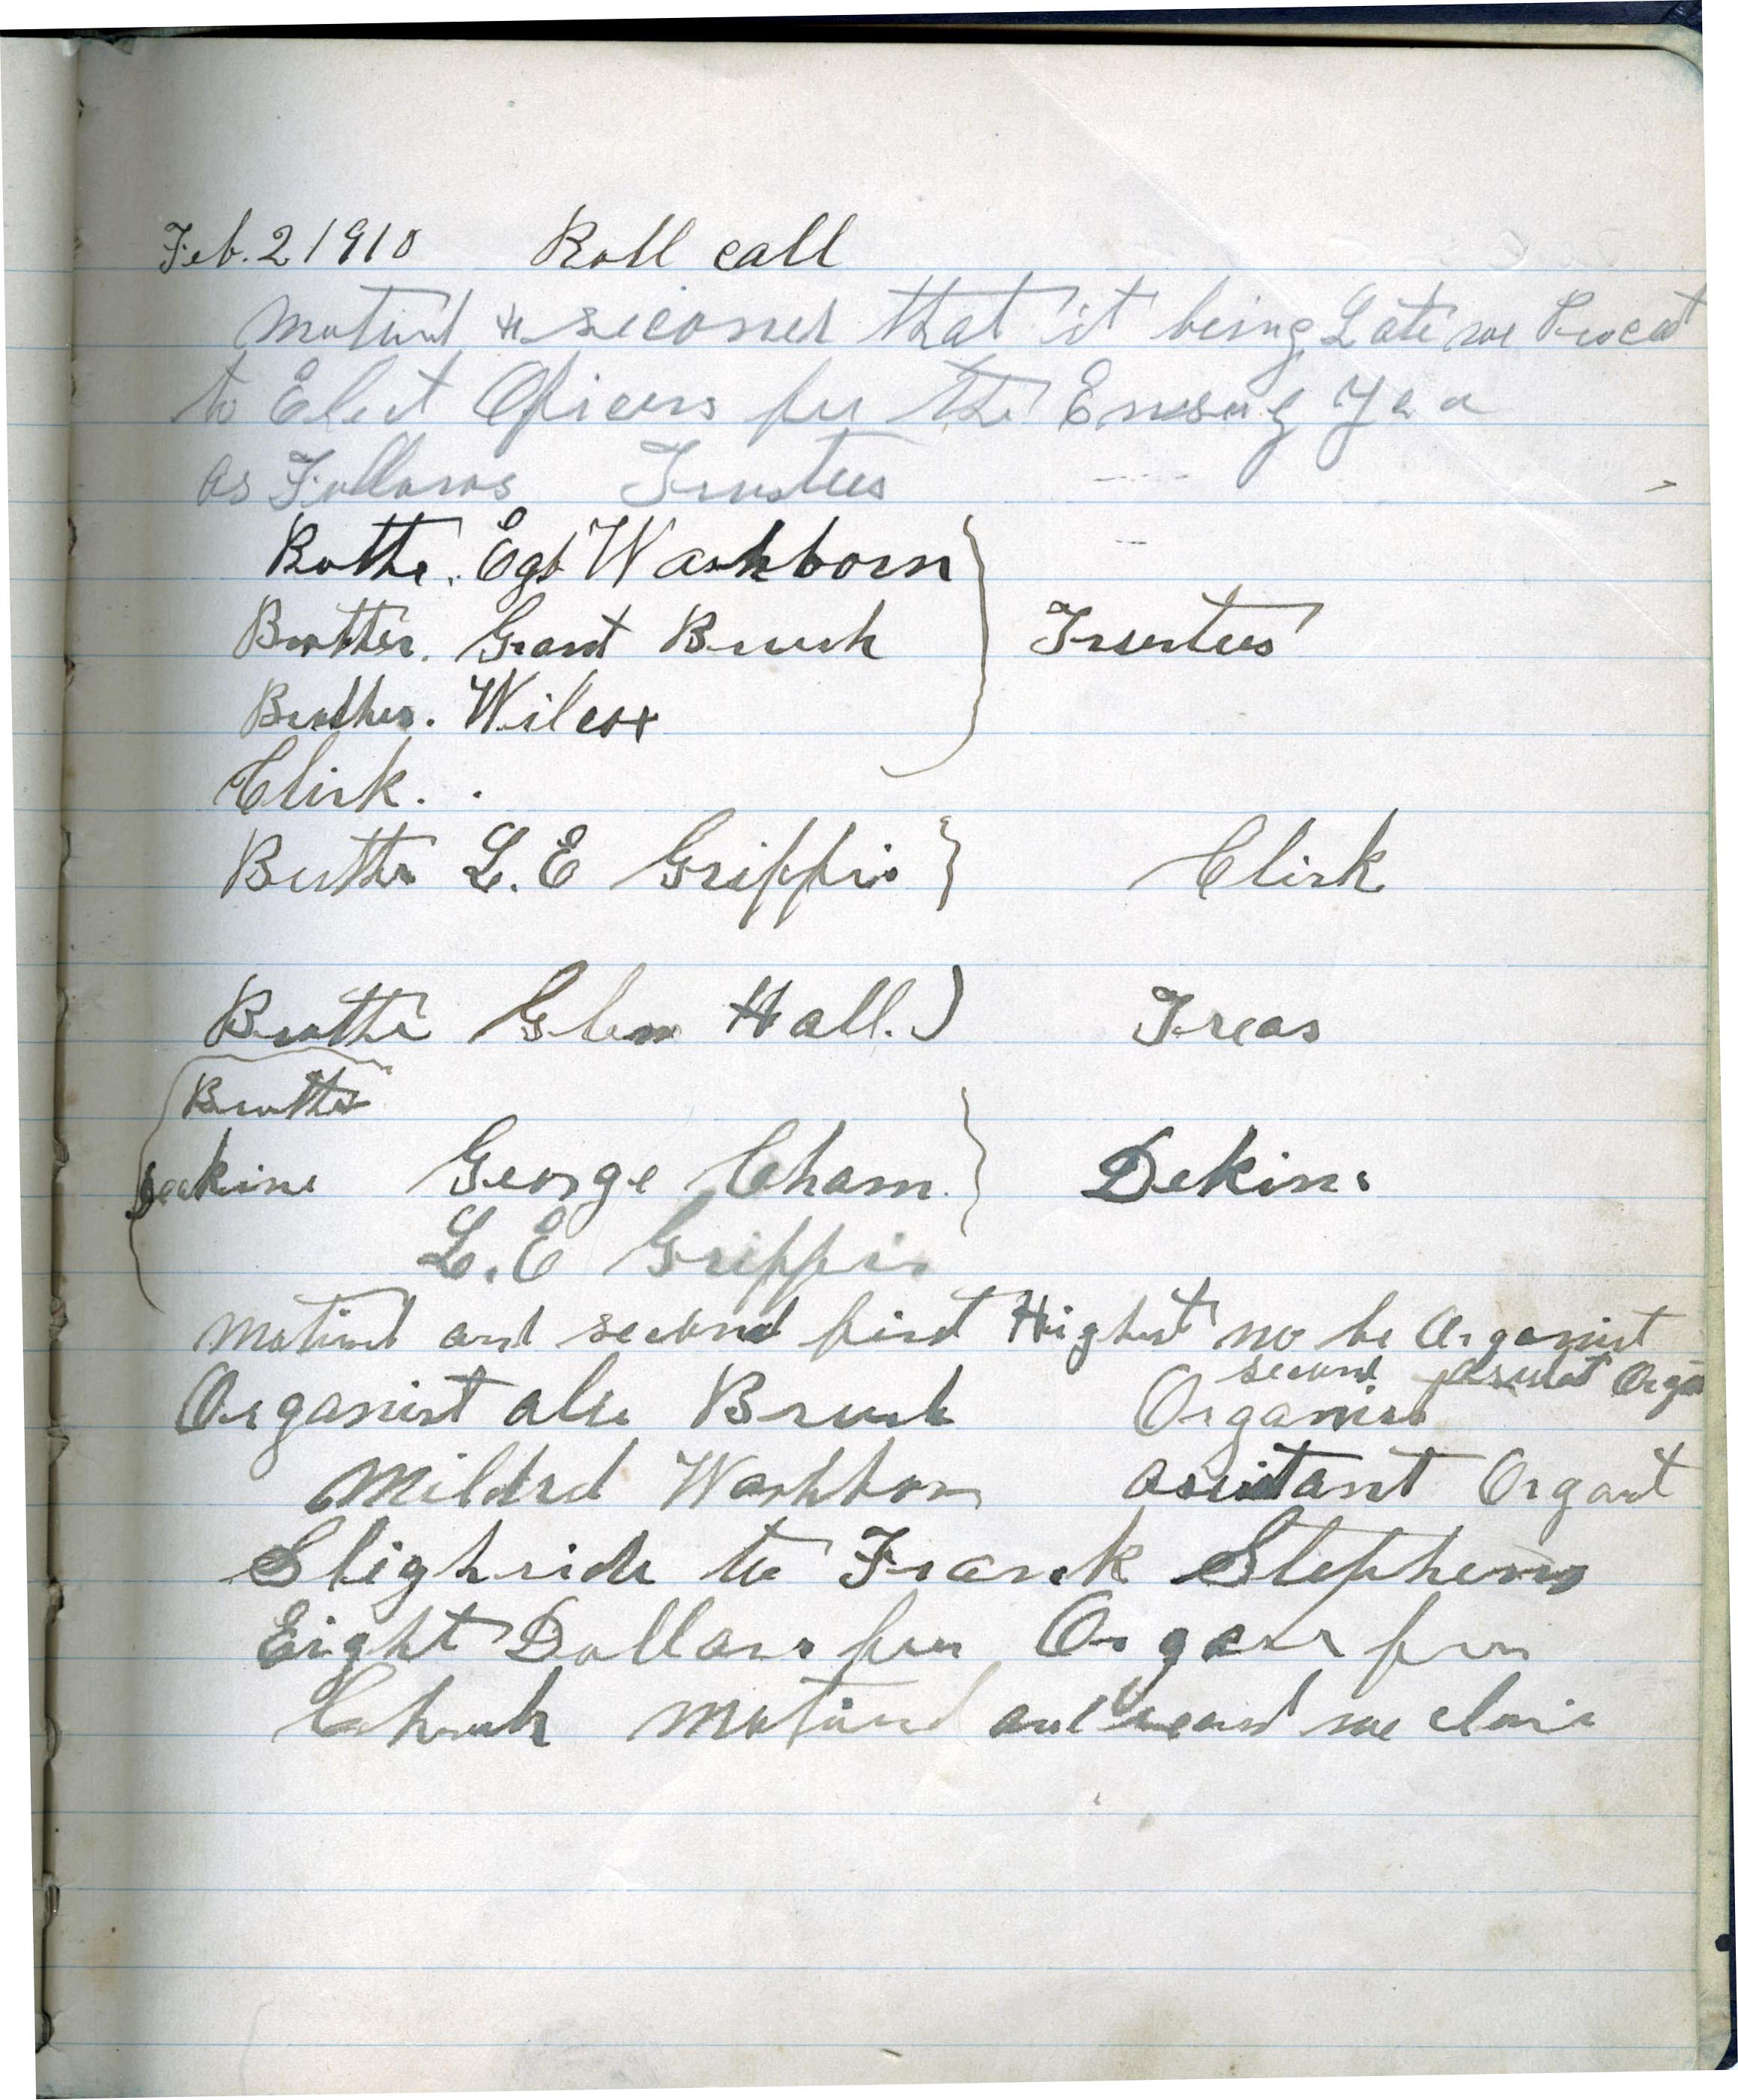 Feb. 2 1910 Roll call
Motind & seconed that it being Late we Proceat
to Elect Oficers for the Ensug Yea
as Follows Trustees
Brothe. Egb Washborn
Brother. Grant Brush Trustees
Brother. Wilcox
Clirk. .
Brother L. E Griffin Clirk
Brothe Glen Hall. Treas
Brother
Deakins George Cham. Dekins
L. E Griffin
Motind and second first Highest no be Organist
second Asistat Orga
Organist also Brush Organist
Mildrd Washborn assitant Organt
Slighride to Frank Stephens
Eight Dollars for Organ for
Church Motind and second we close